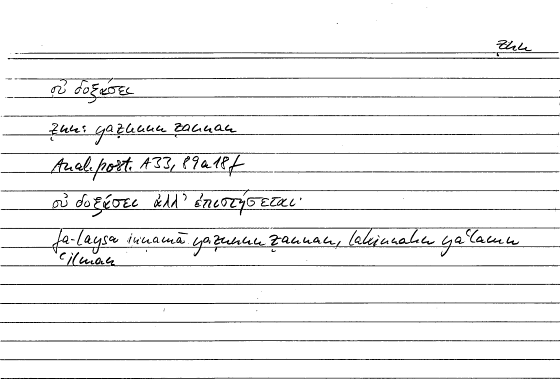 ẓnn
οὐ δοξάσει
ẓnn: yaẓunnu ẓannan
Anal. post. A33, 89a18f
οὐ δοξάσει ἀλλ' ἐπιστήσεται·
fa-laysa innamā yaẓunnu ẓannan, lakinnahu yaʿlamu
ʿilman